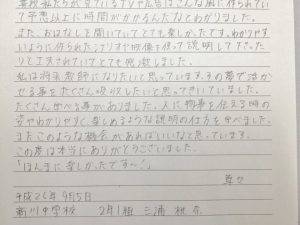 普段私たちが見ているTVや広告はこんな風に作られてい
て予想以上に時間がかかるんだなとわかりました。
また、おはなしを聞いていてとても楽しかったです。わかりやす
いように作られたシナリオや映像を使って説明して下さった
りと工夫されていてとても感激しました。
私は将来教師になりたいと思っています。その夢で活か
せる事をたくさん吸収したいと思ってきいていました。
たくさん学べる事がありました。人に物事を伝える時の
姿やわかりやすく、楽しめるような説明の仕方を学べました。
またこのような機会があればいいなと思っています。
この度は本当にありがとうございました。
「ほんまに楽しかったです〜!」
草々
平成26年9月5日
新川中学校 2年1組 三浦 桃奈